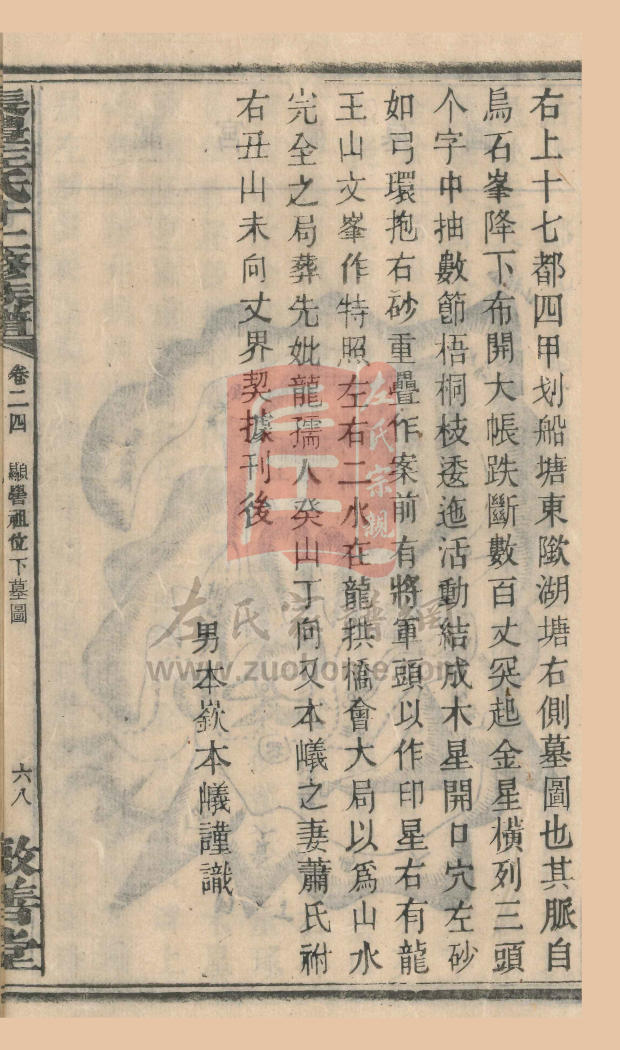 右上十七都四甲划船塘東歐湖塘右側墓圖也其脈自
烏石峯降下布開大帳跌斷數百丈突起金星橫列三頭
个字中抽數節梧桐枝逶迤活動結成木星開口穴左砂
如弓環抱右砂重疊作案前有將軍頭以作印星右有龍
王山文峯作特照左右二水在龍拱橋會大局以爲山水
完全之局葬先妣龍孺人癸山丁向又本嶬之妻蕭氏祔
右丑山未向丈界契據刊後
男本嶔本嶬謹識
左氏十二修族譜
卷二四
顯譽祖位下墓圖
六八
敦善堂
左氏宗親
左氏宗譜網
www.zuodome.com